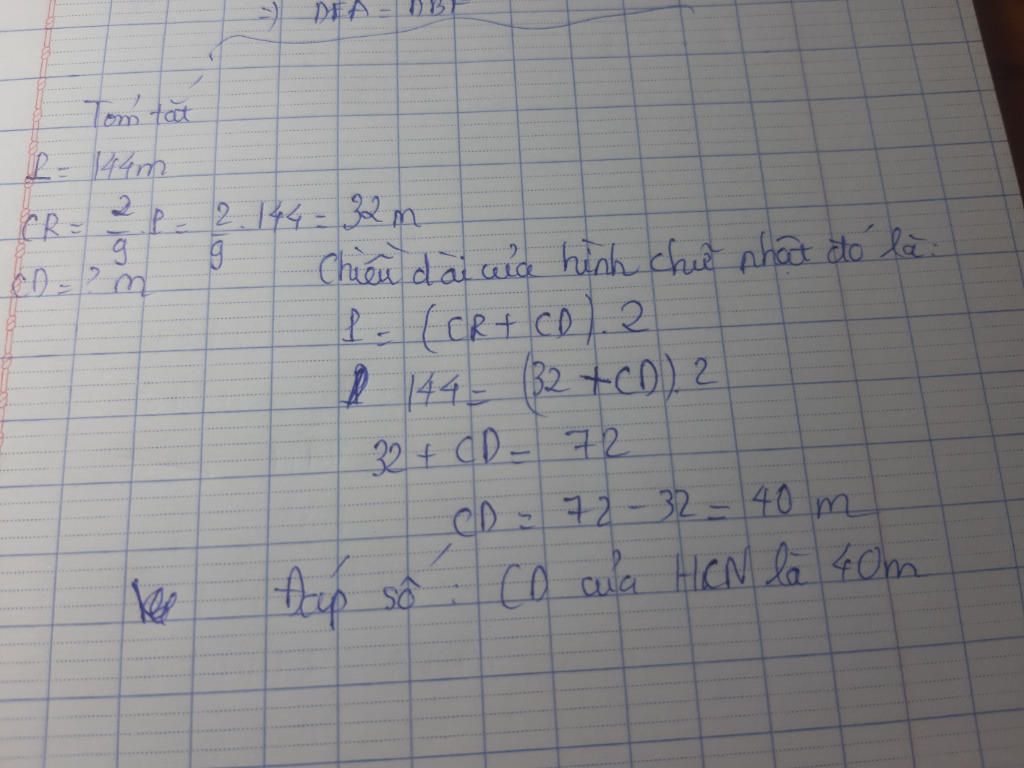 =) DEA = DBF
Tóm tắt
P = 144m
CR = 2/9 P = 2/9 . 144 = 32 m
CD = ? m
Chiều dài của hình chữ nhật đó là:
P = (CR + CD) . 2
144 = (32 + CD) . 2
32 + CD = 72
CD = 72 - 32 = 40 m
Đáp số : CD của HCN là 40m